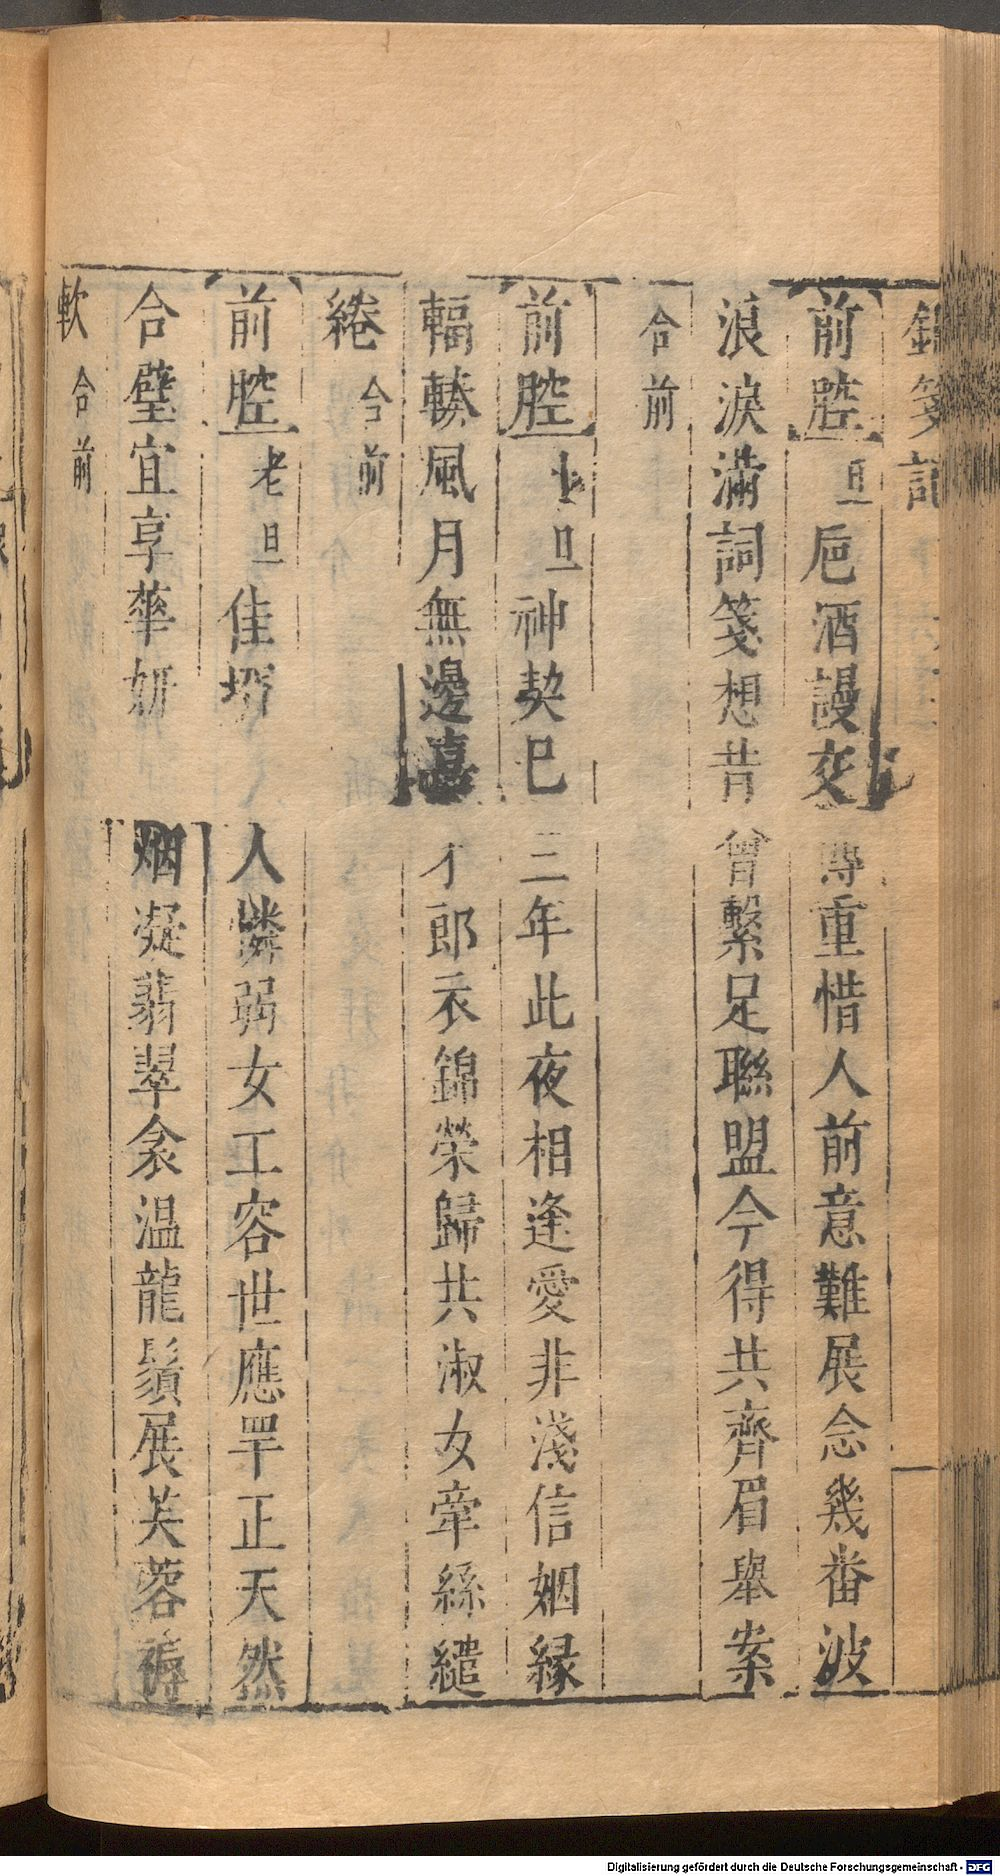 錦箋記
前腔旦巵酒謾交 重惜人前意難展念幾番波
浪淚滿詞箋想昔曾繫足聯盟今得共齊眉舉案
合前
前腔小旦神契已三年此夜相逢愛非淺信姻緣
輻輳風月無邊喜才郎衣錦榮歸共淑女牽絲繾
綣合前
前腔老旦佳壻 人憐弱女工容世應罕正天然
合璧宜享華妍烟凝翡翠衾温龍鬚展芙蓉褥
軟合前
Digitalisierung gefördert durch die Deutsche Forschungsgemeinschaft - DFG